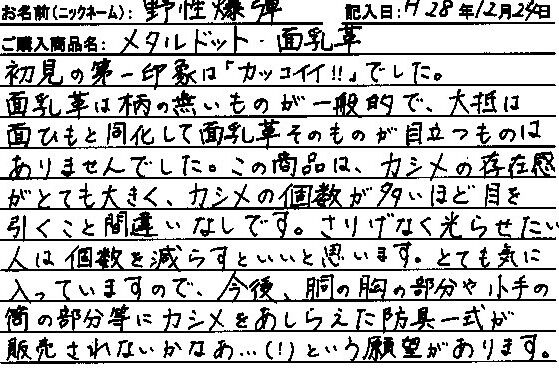 お名前(ニックネーム): 野性爆弾 記入日: H28年12月24日
ご購入商品名: メタルドット・面乳革
初見の第一印象は「カッコイイ!!」でした。
面乳革は柄の無いものが一般的で、大抵は
面ひもと同化して面乳革そのものが目立つものは
ありませんでした。この商品は、カシメの存在感
がとても大きく、カシメの個数が多いほど目を
引くこと間違いなしです。さりげなく光らせたい
人は個数を減らすといいと思います。とても気に
入っていますので、今後、胴の胸の部分や小手の
筒の部分等にカシメをあしらえた防具一式が
販売されないかなあ…(!)という願望があります。